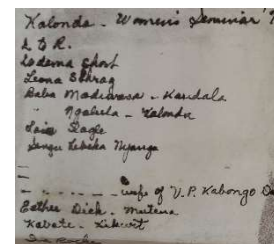 Kalonda - Women's Seminar
L to R.
Lodema Short
Leona Schrag
Baba Madiawasa - Kandala
" Ngalula - Kalonda
Lois Slagle
Lengu Lebeka Nyanga
- - . . - . . wife of V.P. Kabongo
Esther Dick - Mutena
Kabate - Kikwit